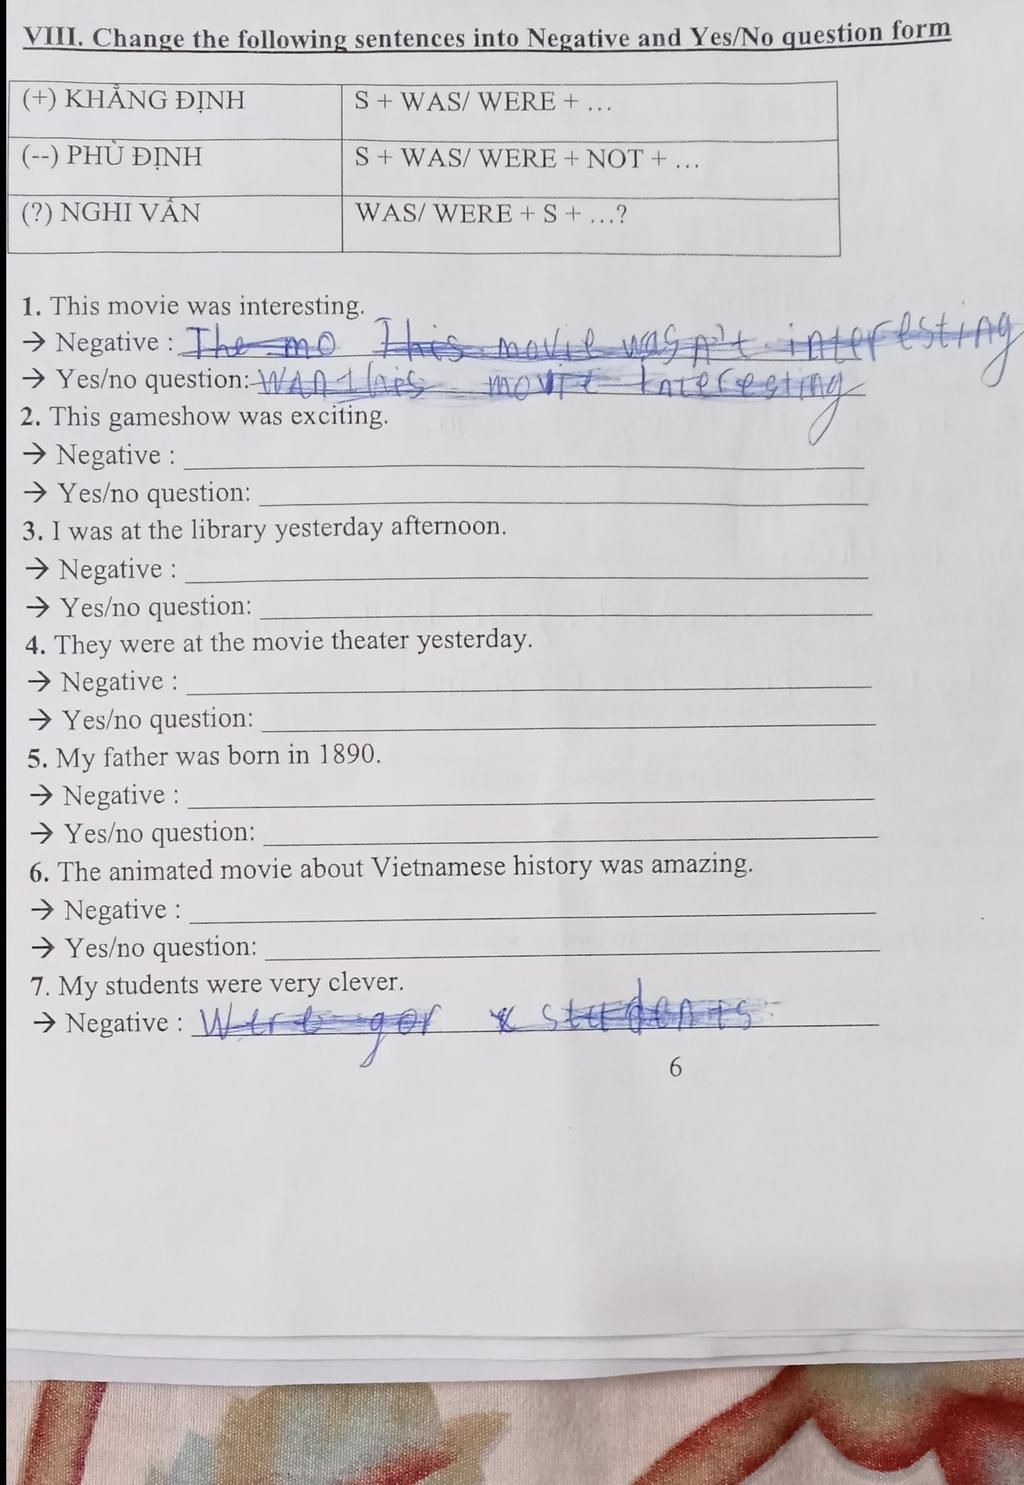 VIII. Change the following sentences into Negative and Yes/No question form
(+) KHẲNG ĐỊNH S + WAS/ WERE + ...
(--) PHỦ ĐỊNH S + WAS/ WERE + NOT + ...
(?) NGHI VẤN WAS/ WERE + S + ...?
1. This movie was interesting.
→ Negative : The mo This movie wasn't interesting
→ Yes/no question: this movie interesting
2. This gameshow was exciting.
→ Negative :
→ Yes/no question:
3. I was at the library yesterday afternoon.
→ Negative :
→ Yes/no question:
4. They were at the movie theater yesterday.
→ Negative :
→ Yes/no question:
5. My father was born in 1890.
→ Negative :
→ Yes/no question:
6. The animated movie about Vietnamese history was amazing.
→ Negative :
→ Yes/no question:
7. My students were very clever.
→ Negative : students
6